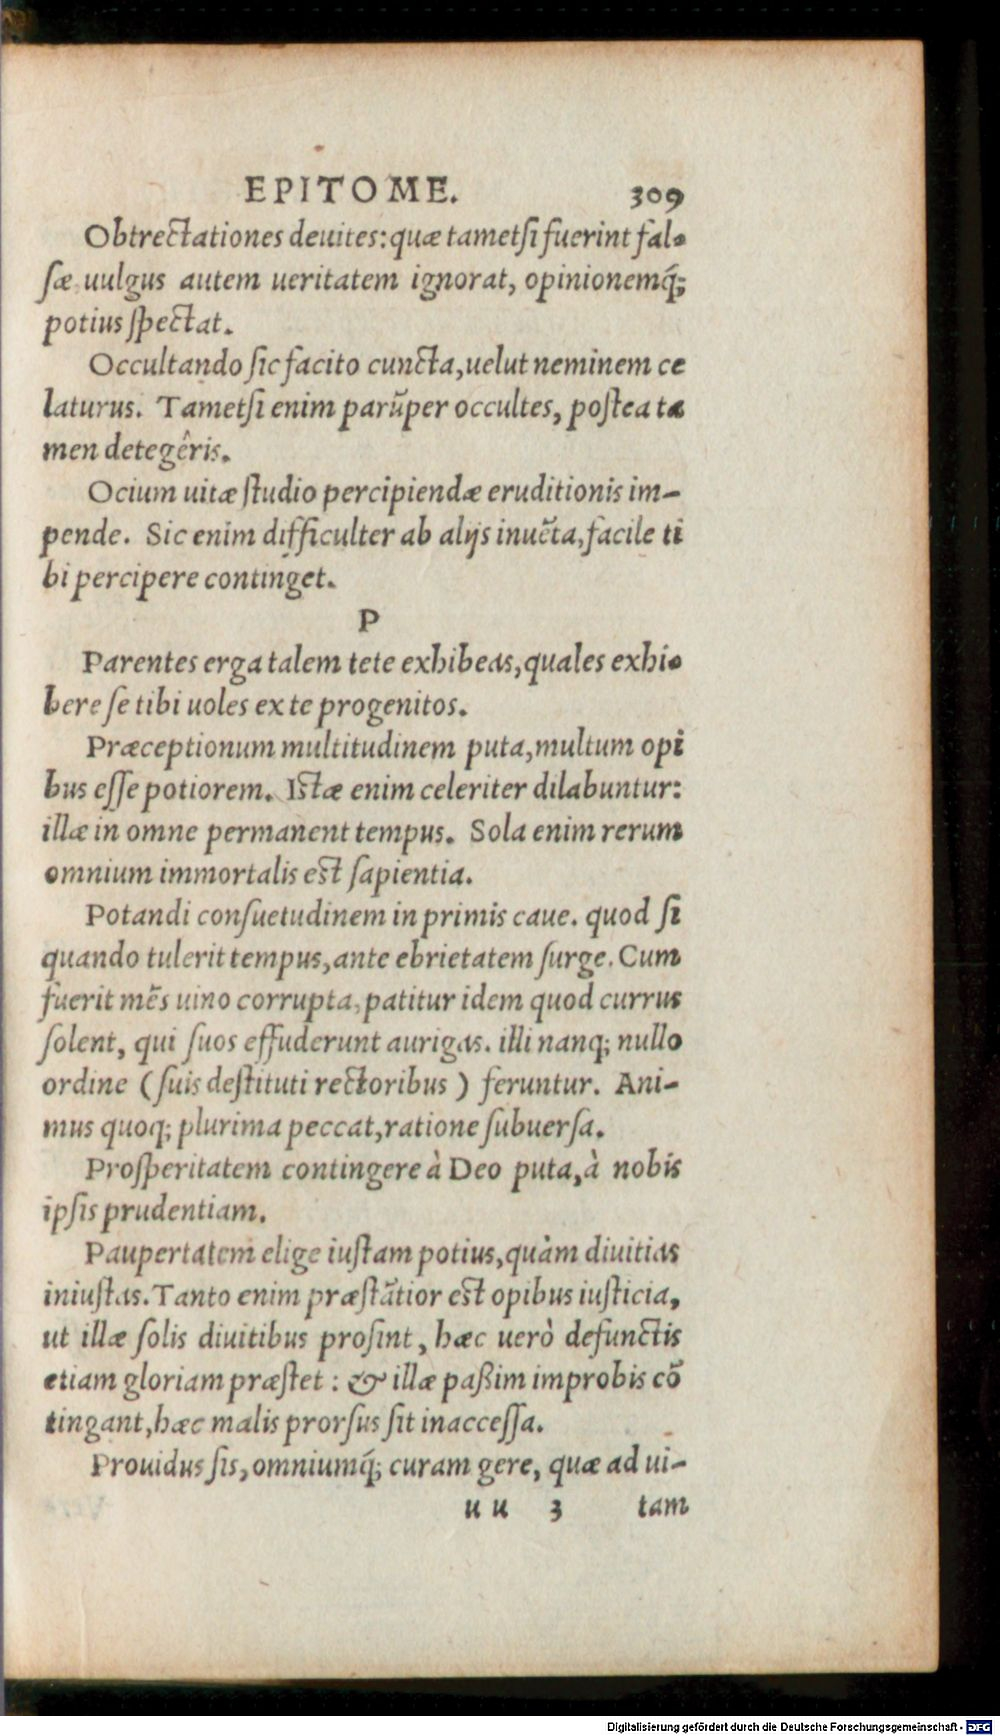 EPITOME. 309
Obtrectationes deuites: quæ tametſi fuerint fal-
ſæ uulgus autem ueritatem ignorat, opinionemq́;
potius ſpectat.
Occultando ſic facito cuncta, uelut neminem ce
laturus. Tametſi enim parũper occultes, poſtea ta
men detegêris.
Ocium uitæ ſtudio percipiendæ eruditionis im-
pende. Sic enim difficulter ab alijs inuẽta, facile ti
bi percipere continget.
P
Parentes erga talem tete exhibeas, quales exhi-
bere ſe tibi uoles ex te progenitos.
Præceptionum multitudinem puta, multum opi
bus eſſe potiorem. Iſtæ enim celeriter dilabuntur:
illæ in omne permanent tempus. Sola enim rerum
omnium immortalis eſt ſapientia.
Potandi conſuetudinem in primis caue. quod ſi
quando tulerit tempus, ante ebrietatem ſurge. Cum
fuerit mẽs uino corrupta, patitur idem quod currus
ſolent, qui ſuos effuderunt aurigas. illi nanq; nullo
ordine (ſuis deſtituti rectoribus) feruntur. Ani-
mus quoq; plurima peccat, ratione ſubuerſa.
Proſperitatem contingere à Deo puta, à nobis
ipſis prudentiam.
Paupertatem elige iuſtam potius, quàm diuitias
iniuſtas. Tanto enim præſtãtior eſt opibus iuſticia,
ut illæ ſolis diuitibus proſint, hæc uerò defunctis
etiam gloriam præſtet: & illæ paßim improbis cõ
tingant, hæc malis prorſus ſit inacceſſa.
Prouidus ſis, omniumq́; curam gere, quæ ad ui-
uu 3 tam
Digitalisierung gefördert durch die Deutsche Forschungsgemeinschaft - DFG